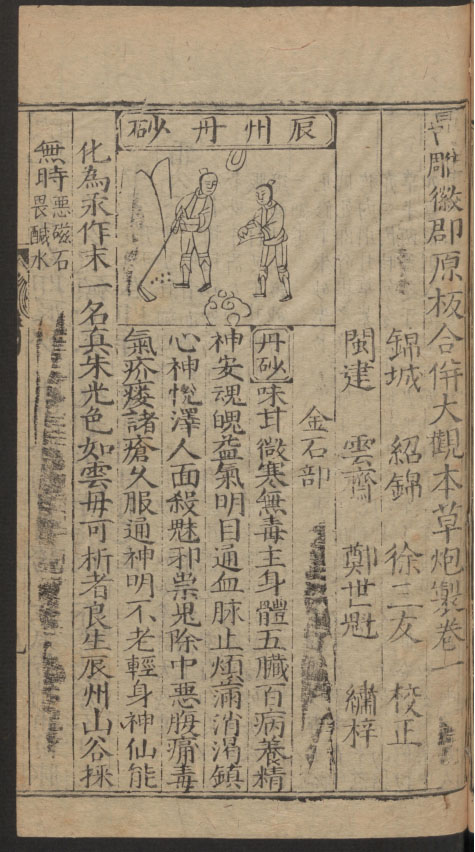 鼎雕徽郡原板合併大觀本草炮製卷一
錦城 紹錦 徐三友 校正
閩建 雲齋 鄭世魁 繡梓
金石部
辰州丹砂
丹砂味甘微寒無毒主身體五臟百病養精
神安魂魄益氣明目通血脉止煩滿消渴鎮
心神悅澤人面殺魅邪祟鬼除中惡腹痛毒
氣疥瘻諸瘡久服通神明不老輕身神仙能
化為汞作末一名真朱光色如雲母可析者良生辰州山谷採
無時惡磁石
畏鹹水